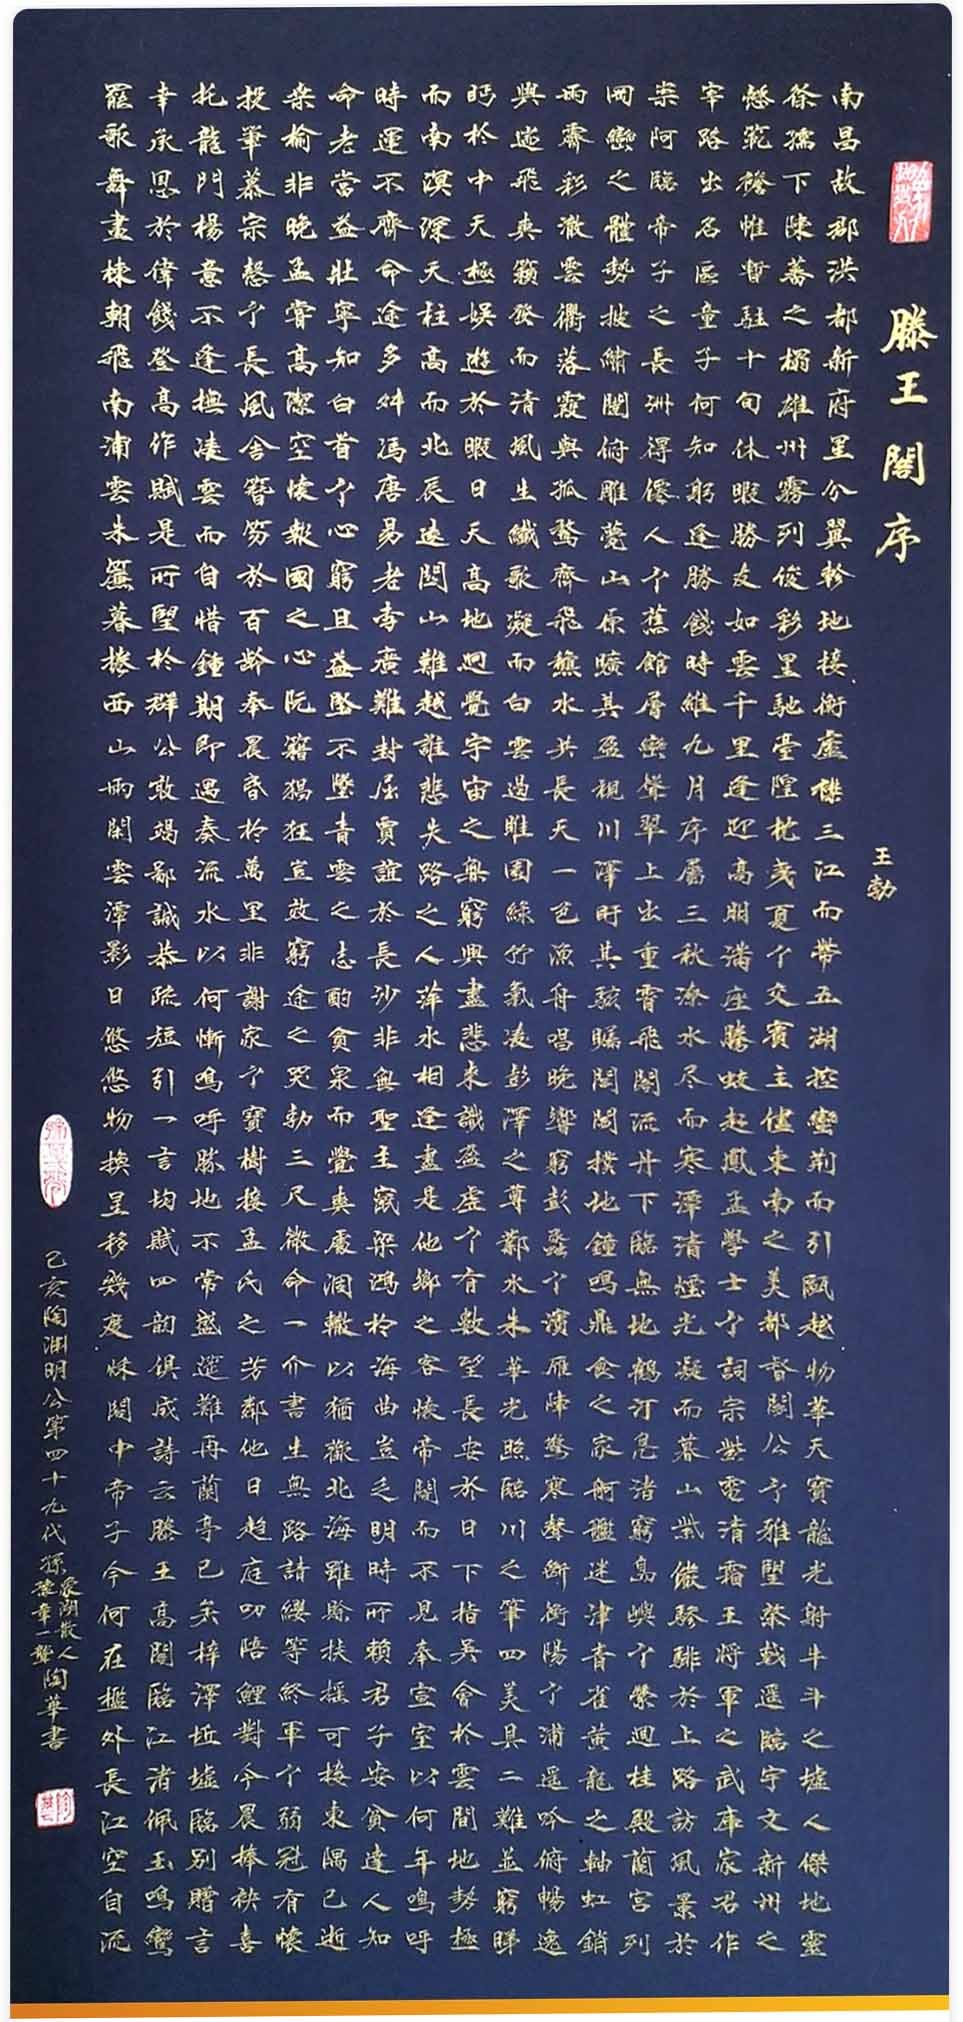 滕王閣序
王勃
南昌故郡洪都新府星分翼軫地接衡廬襟三江而帶五湖控蠻荊而引甌越物華天寶龍光射牛斗之墟人傑地靈
徐孺下陳蕃之榻雄州霧列俊彩星馳臺隍枕夷夏之交賓主儘東南之美都督閻公之雅望棨戟遙臨宇文新州之
懿範襜帷暫駐十旬休暇勝友如雲千里逢迎高朋滿座騰蛟起鳳孟學士之詞宗紫電清霜王將軍之武庫家君作
宰路出名區童子何知躬逢勝餞時維九月序屬三秋潦水尽而寒潭清煙光凝而暮山紫儼驂騑於上路訪風景於
崇阿臨帝子之長洲得僊人之舊館層巒聳翠上出重霄飛閣流丹下臨無地鶴汀鳧渚窮島嶼之縈迴桂殿蘭宮列
岡巒之體勢披繡闥俯雕甍山原曠其盈視川澤盱其駭矚閭閻撲地鐘鳴鼎食之家舸艦迷津青雀黃龍之軸虹銷
雨霽彩徹雲衢落霞與孤鶩齊飛秋水共長天一色漁舟唱晚響窮彭蠡之濱雁陣驚寒聲斷衡陽之浦遙吟俯暢逸
興遄飛爽籟發而清風生纖歌凝而白雲遏睢園綠竹氣凌彭澤之尊鄴水朱華光照臨川之筆四美具二難並窮睇
眄於中天極娛遊於暇日天高地迥覺宇宙之無窮興盡悲來識盈虛之有數望長安於日下指吳會於雲間地勢極
而南溟深天柱高而北辰遠關山難越誰悲失路之人萍水相逢盡是他鄉之客懷帝閽而不見奉宣室以何年嗚呼
時運不齊命途多舛馮唐易老李廣難封屈賈誼於長沙非無聖主竄梁鴻於海曲豈乏明時所賴君子安貧達人知
命老當益壯寧知白首之心窮且益堅不墜青雲之志酌貪泉而覺爽處涸轍以猶歡北海雖賒扶搖可接東隅已逝
桑榆非晚孟嘗高潔空懷報國之心阮籍猖狂豈效窮途之哭勃三尺微命一介書生無路請纓等終軍之弱冠有懷
投筆慕宗愨之長風舍簪笏於百齡奉晨昏於萬里非謝家之寶樹接孟氏之芳鄰他日趨庭叨陪鯉對今晨捧袂喜
托龍門楊意不逢撫凌雲而自惜鐘期即遇奏流水以何慚嗚呼勝地不常盛筵難再蘭亭已矣梓澤坵墟臨別贈言
幸承恩於偉餞登高作賦是所望於群公敢竭鄙誠恭疏短引一言均賦四韻俱成詩云滕王高閣臨江渚佩玉鳴鸞
罷歌舞畫棟朝飛南浦雲朱簾暮捲西山雨閑雲潭影日悠悠物換星移幾度秋閣中帝子今何在檻外長江空自流
己亥陶淵明公第四十九代孫
象湖散人
豫章一
陶華書